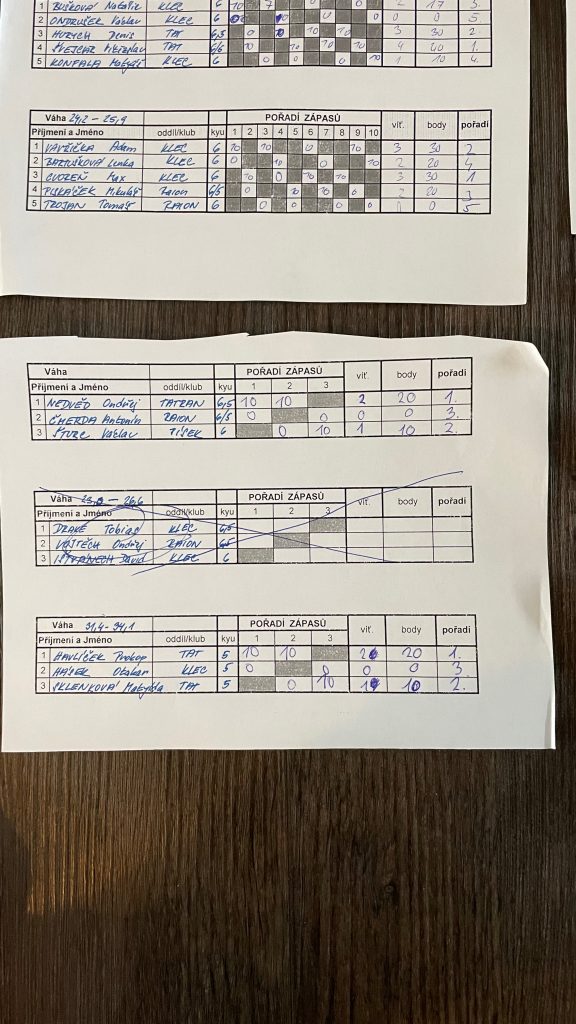 1 BUŠKOVÁ Natálie KLEC 6 10 7 2 17 3.
2 ONDRUŠEK Václav KLEC 6 0 0 0 0 5
3 HURYCH Denis TAT 6/5 0 0 10 10 3 30 2.
4 TAT 6/5 10 10 10 10 4 40 1.
5 KONFALA Matyáš KLEC 6 0 0 0 10 1 10 4.
Váha 24,2 – 25,9 POŘADÍ ZÁPASŮ vít. body pořadí
Příjmení a Jméno oddíl/klub kyu 1 2 3 4 5 6 7 8 9 10
1 VAVŘIČKA Adam KLEC 6 10 10 0 10 3 30 2
2 BARTUŠKOVÁ Lenka KLEC 6 0 10 0 10 2 20 4
3 CVOREŇ Max KLEC 6 10 0 10 10 3 30 1
4 PISKÁČEK Mikuláš Raion 6/5 0 10 10 0 2 20 3
5 TROJAN Tomáš RAION 6 0 0 0 0 0 0 5
Váha POŘADÍ ZÁPASŮ vít. body pořadí
Příjmení a Jméno oddíl/klub kyu 1 2 3
1 NEDVĚD Ondřej TATRAN 6/5 10 10 2 20 1.
2 ČMERDA Antonín RAION 6/5 0 0 0 0 3.
3 ŠTURC Václav TÍŠEK 6 0 10 1 10 2.
Váha – 26,6 POŘADÍ ZÁPASŮ vít. body pořadí
Příjmení a Jméno oddíl/klub kyu 1 2 3
1 DRAKE Tobias KLEC 6/5
2 VOJTĚCH Ondřej RAION 6/5
3 David KLEC 6
Váha 31,4 - 34,1 POŘADÍ ZÁPASŮ vít. body pořadí
Příjmení a Jméno oddíl/klub kyu 1 2 3
1 HAVLÍČEK Prokop TAT 5 10 10 2 20 1.
2 HÁJEK Otakar KLEC 5 0 0 0 0 3.
3 SKLENKOVÁ Matylda TAT 5 0 10 1 10 2.